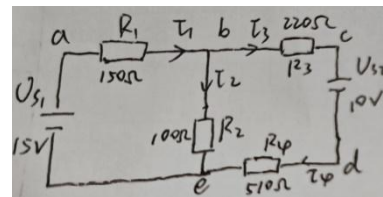 a R1 I1 b I3 220Ω c
150Ω R3
US1 I2 US2
15V 100Ω R2 10V
R4
e 510Ω I4 d